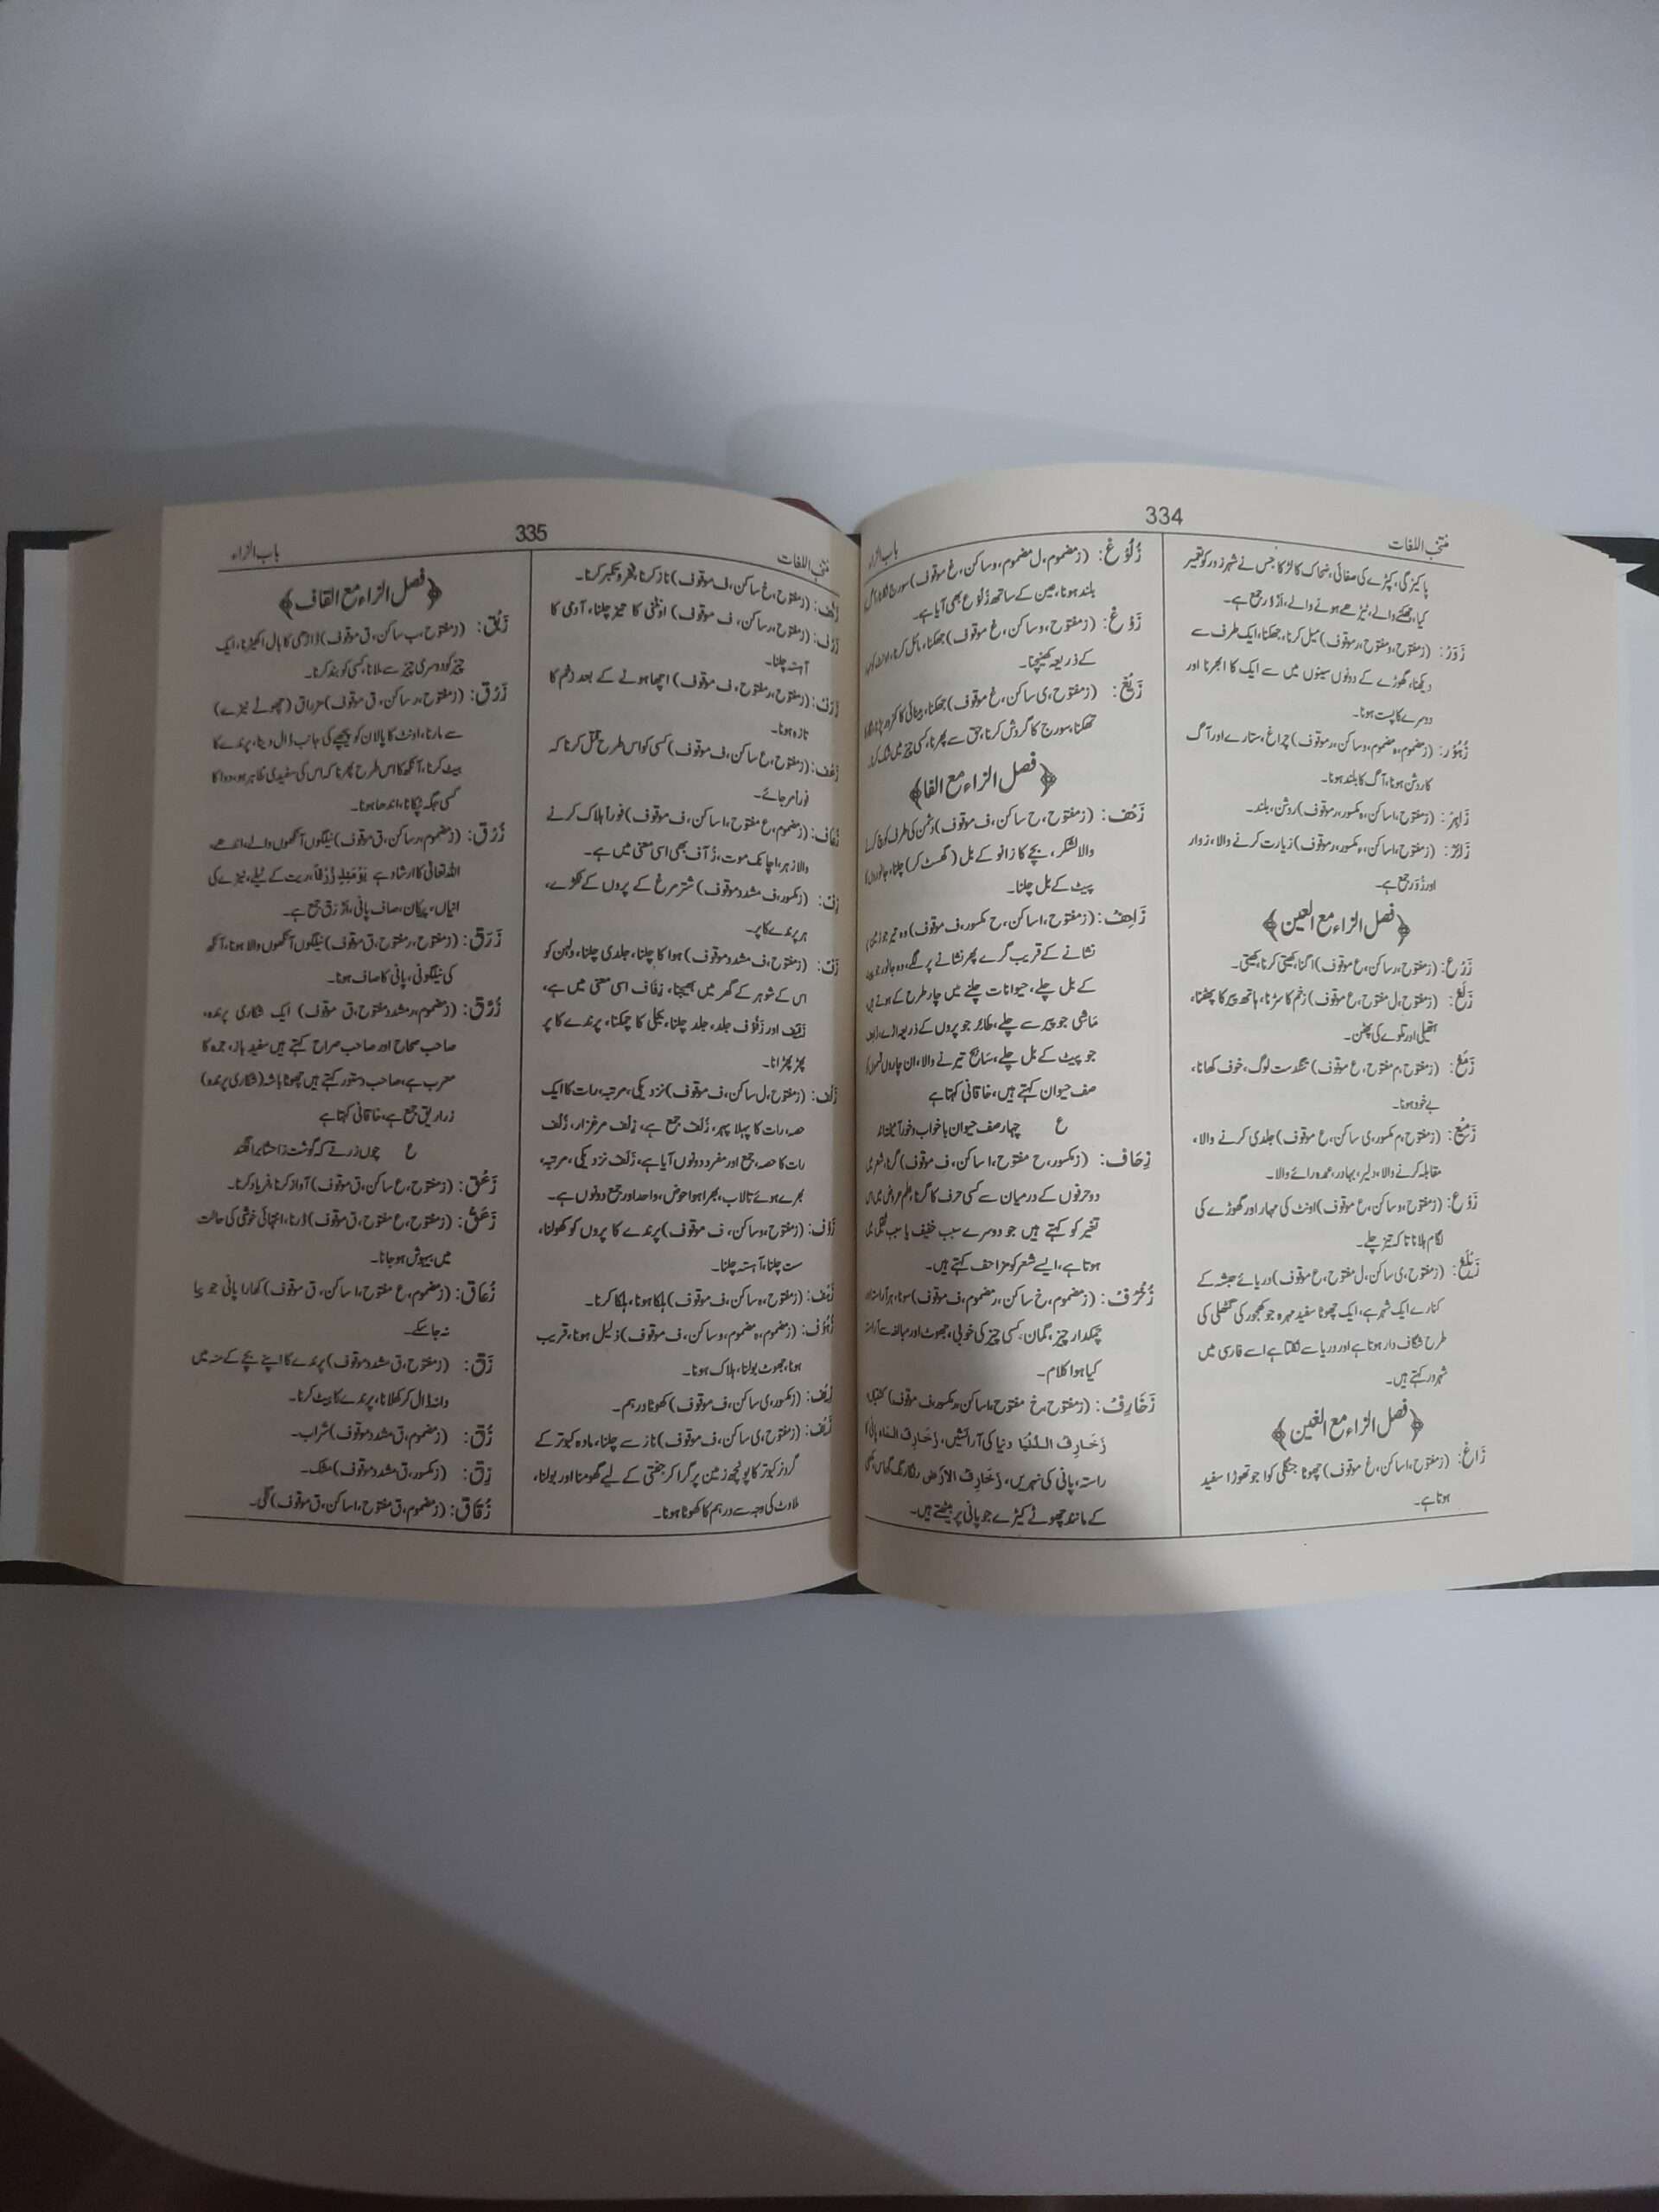 منتخب اللغات
334
باب الزاء
پاکیزگی، کپڑے کی صفائی، ضحاک کا لڑکا جس نے شہر زور کو تعمیر
کیا، جھکنے والے، ٹیڑھے ہونے والے، اَزْوَر جمع ہے۔
زَوَرْ: (زمفتوح، ومفتوح، رموقوف) میل کرنا، جھکنا، ایک طرف سے
دیکنا، گھوڑے کے دونوں سینوں میں سے ایک کا ابھرنا اور
دوسرے کا پست ہونا۔
زُہُوْر: (زمضموم، ہ مضموم، وساکن، رموقوف) چراغ، ستارے اور آگ
کا روشن ہونا، آگ کا بلند ہونا۔
زَاہِرْ: (زمفتوح، اساکن، ہ مکسور، رموقوف) روشن، بلند۔
زَائِرْ: (زمفتوح، اساکن، ء مکسور، رموقوف) زیارت کرنے والا، زوار
اور زُوَر جمع ہے۔
﴿فصل الزاء مع العین﴾
زَرْع: (زمفتوح، رساکن، ع موقوف) اگنا، کھیتی کرنا، کھیتی۔
زَلَعْ: (زمفتوح، ل مفتوح، ع موقوف) زخم کا سڑنا، ہاتھ پیر کا پھٹنا،
ہتھیلی اور تلوے کی پھٹن۔
زَمَعْ: (زمفتوح، م مفتوح، ع موقوف) تنگدست لوگ، خوف کھانا،
بے خود ہونا۔
زَمِیْعْ: (زمفتوح، م مکسور، ی ساکن، ع موقوف) جلدی کرنے والا،
مقابلہ کرنے والا، دلیر، بہادر، عمدہ رائے والا۔
زَوْع: (زمفتوح، وساکن، ع موقوف) اونٹ کی مہار اور گھوڑے کی
لگام ہلانا تاکہ تیز چلے۔
زَیْلَعْ: (زمفتوح، ی ساکن، ل مفتوح، ع موقوف) دریائے حبشہ کے
کنارے ایک شہر ہے، ایک چھوٹا سفید مہرہ جو کھجور کی گٹھلی کی
طرح شگاف دار ہوتا ہے اور دریا سے نکلتا ہے اسے فارسی میں
شہرور کہتے ہیں۔
﴿فصل الزاء مع الغین﴾
زَاغْ: (زمفتوح، اساکن، غ موقوف) چھوٹا جنگلی کوا جو تھوڑا سفید
ہوتا ہے۔
زُلُوْغ: (زمضموم، ل مضموم، وساکن، غ موقوف) سورج نکلنا،
بلند ہونا، عین کے ساتھ زُلُوْع بھی آیا ہے۔
زَوْغ: (زمفتوح، وساکن، غ موقوف) جھکنا، مائل کرنا، اونٹ کو
کے ذریعہ کھینچنا۔
زَیْغْ: (زمفتوح، ی ساکن، غ موقوف) جھکنا، بینائی کا کمزور
تھکنا، سورج کا گردش کرنا، حق سے پھرنا، کسی چیز میں شک کرنا۔
﴿فصل الزاء مع الفا﴾
زَحْف: (زمفتوح، ح ساکن، ف موقوف) دشمن کی طرف کوچ کرنے
والا لشکر، بچے کا زانو کے بل (گھسٹ کر) چلنا، جانوروں
پیٹ کے بل چلنا۔
زَاحِفْ: (زمفتوح، اساکن، ح مکسور، ف موقوف) وہ تیر جو
نشانے کے قریب گرے پھر نشانے پر لگے، وہ جانور جو پیٹ
کے بل چلے، حیوانات چلنے میں چار طرح کے ہوتے ہیں
مَاشِی جو پیر سے چلے، طَائِر جو پروں کے ذریعہ اڑے، زاحف
جو پیٹ کے بل چلے، سَابِح تیرنے والا، ان چاروں قسموں کو
صف حیوان کہتے ہیں، خاقانی کہتا ہے
ع چہار صف حیوان با خواب وخور آمیختہ اند
زِحَاف: (زمکسور، ح مفتوح، اساکن، ف موقوف) گرنا، شعر میں
دو حرفوں کے درمیان سے کسی حرف کا گرنا، علم عروض میں اس
تغیر کو کہتے ہیں جو دوسرے سبب خفیف یا سبب ثقیل میں
ہوتا ہے، ایسے شعر کو مزاحف کہتے ہیں۔
زُخْرُف: (زمضموم، خ ساکن، رمضموم، ف موقوف) سونا، ہر آراستہ اور
چمکدار چیز، گمان، کسی چیز کی خوبی، جھوٹ اور مبالغہ سے آراستہ
کیا ہوا کلام۔
زَخَارِفْ: (زمفتوح، خ مفتوح، اساکن، رمکسور، ف موقوف) کشتیاں
زَخَارِفُ الدُّنْیَا دنیا کی آرائشیں، زَخَارِفُ الماء پانی
راستہ، پانی کی نہریں، زَخَارِفُ الاَرْض رنگارنگ گھاس، مکھی
کے مانند چھوٹے کیڑے جو پانی پر بیٹھتے ہیں۔
منتخب اللغات
335
باب الزاء
زَغْف: (زمفتوح، غ ساکن، ف موقوف) ناز کرنا، فخر و تکبر کرنا۔
زَرْف: (زمفتوح، رساکن، ف موقوف) اونٹنی کا تیز چلنا، آدمی کا
آہستہ چلنا۔
زَرَف: (زمفتوح، رمفتوح، ف موقوف) اچھا ہونے کے بعد زخم کا
تازہ ہونا۔
زَعْف: (زمفتوح، ع ساکن، ف موقوف) کسی کو اس طرح قتل کرنا کہ
فوراً مرجائے۔
زُعَاف: (زمضموم، ع مفتوح، اساکن، ف موقوف) فوراً ہلاک کرنے
والا زہر، اچانک موت، زُآف بھی اسی معنی میں ہے۔
زِف: (زمکسور، ف مشدد موقوف) شتر مرغ کے پروں کے ٹکڑے،
ہر پرندے کا پر۔
زَف: (زمفتوح، ف مشدد موقوف) ہوا کا چلنا، جلدی چلنا، دلہن کو
اس کے شوہر کے گھر میں بھیجنا، زِفَاف اسی معنی میں ہے،
زَفِیْف اور زَفُوْف جلد، جلد چلنا، بجلی کا چمکنا، پرندے کا پر
پھڑپھڑانا۔
زَلْف: (زمفتوح، ل ساکن، ف موقوف) نزدیکی، مرتبہ، رات کا ایک
حصہ، رات کا پہلا پہر، زُلَف جمع ہے، زِلْف مرغزار، زُلْف
رات کا حصہ، جمع اور مفرد دونوں آیا ہے، زَلَف نزدیکی، مرتبہ،
بھرے ہوئے تالاب، بھرا ہوا حوض، واحد اور جمع دونوں ہے۔
زَوْف: (زمفتوح، وساکن، ف موقوف) پرندے کا پروں کو کھولنا،
ست چلنا، آہستہ چلنا۔
زَہْف: (زمفتوح، ہ ساکن، ف موقوف) ہلکا ہونا، ہلکا کرنا۔
زُہُوْف: (زمضموم، ہ مضموم، وساکن، ف موقوف) ذلیل ہونا، قریب
ہونا، جھوٹ بولنا، ہلاک ہونا۔
زِیْف: (زمکسور، ی ساکن، ف موقوف) کھوٹا درہم۔
زَیْف: (زمفتوح، ی ساکن، ف موقوف) ناز سے چلنا، مادہ کبوتر کے
گرد نر کبوتر کا پونچھ زمین پر گرا کر جفتی کے لیے گھومنا اور بولنا،
ملاوٹ کی وجہ سے درہم کا کھوٹا ہونا۔
﴿فصل الزاء مع القاف﴾
زَبْق: (زمفتوح، ب ساکن، ق موقوف) ڈاڑھی کا بال اکھیڑنا، ایک
چیز کو دوسری چیز سے ملانا، کسی کو بند کرنا۔
زَرْق: (زمفتوح، رساکن، ق موقوف) مزراق (چھوٹے نیزے)
سے مارنا، اونٹ کا پالان کو پیچھے کی جانب ڈال دینا، پرندے کا
بیٹ کرنا، آنکھ کا اس طرح پھرنا کہ اس کی سفیدی ظاہر ہو، دوا کا
کسی جگہ ٹپکانا، اندھا ہونا۔
زُرْق: (زمضموم، رساکن، ق موقوف) نیلگوں آنکھوں والے، اندھے،
اللہ تعالیٰ کا ارشاد ہے یَوْمَئِذٍ زُرْقاً، ریت کے ٹیلے، نیزے کی
انیاں، پیکان، صاف پانی، اَزْرَق جمع ہے۔
زَرَق: (زمفتوح، رمفتوح، ق موقوف) نیلگوں آنکھوں والا ہونا، آنکھ
کی نیلگونی، پانی کا صاف ہونا۔
زُرَّق: (زمضموم، رمشدد مفتوح، ق موقوف) ایک شکاری پرندہ،
صاحب صحاح اور صاحب صراح کہتے ہیں سفید باز، جرہ کا
معرب ہے، صاحب دستور کہتے ہیں چھوٹا باشہ (شکاری پرندہ)
زراریق جمع ہے، خاقانی کہتا ہے
ع چوں زرقے کہ گوشت ز احشا برافگند
زَعْق: (زمفتوح، ع ساکن، ق موقوف) آواز کرنا، فریاد کرنا۔
زَعَق: (زمفتوح، ع مفتوح، ق موقوف) ڈرنا، انتہائی خوشی کی حالت
میں بیہوش ہوجانا۔
زُعَاق: (زمضموم، ع مفتوح، اساکن، ق موقوف) کھارا پانی جو پیا
نہ جاسکے۔
زَق: (زمفتوح، ق مشدد موقوف) پرندے کا اپنے بچے کے منہ میں
دانہ ڈال کر کھلانا، پرندے کا بیٹ کرنا۔
زُق: (زمضموم، ق مشدد موقوف) شراب۔
زِق: (زمکسور، ق مشدد موقوف) مشک۔
زُقَاق: (زمضموم، ق مفتوح، اساکن، ق موقوف) گلی۔